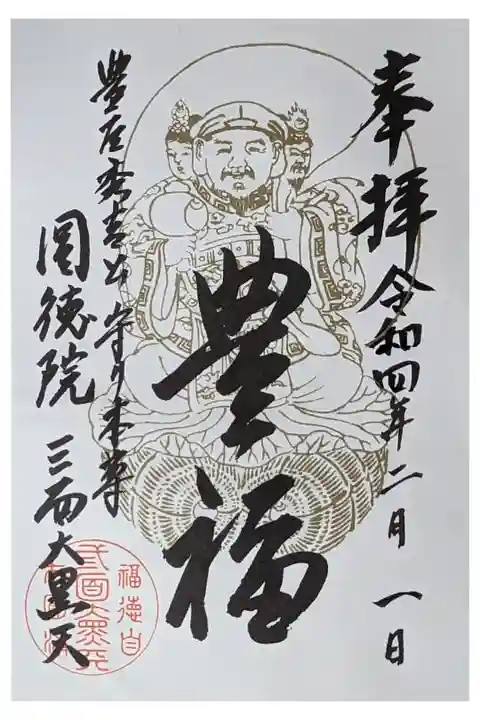 奉拝 令和四年二月 一日
豊福
豊臣秀吉公守り本尊
圓徳院 三面大黒天
福徳自